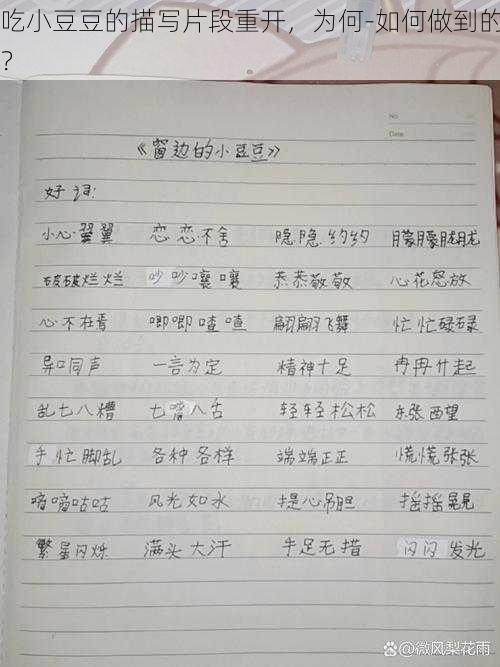 吃小豆豆的描写片段重开，为何-如何做到的
?
No
Date
《窗边的小豆豆》
好词:
小心翼翼 恋恋不舍 隐隐约约 朦朦胧胧
破破烂烂 吵吵嚷嚷 恭恭敬敬 心花怒放
心不在焉 唧唧喳喳 翩翩飞舞 忙忙碌碌
异口同声 一言为定 精神十足 冉冉升起
乱七八糟 七嘴八舌 轻轻松松 东张西望
手忙脚乱 各种各样 端端正正 慌慌张张
嘀嘀咕咕 风光如水 提心吊胆 摇摇晃晃
繁星闪烁 满头大汗 手足无措 闪闪发光
@微风梨花雨